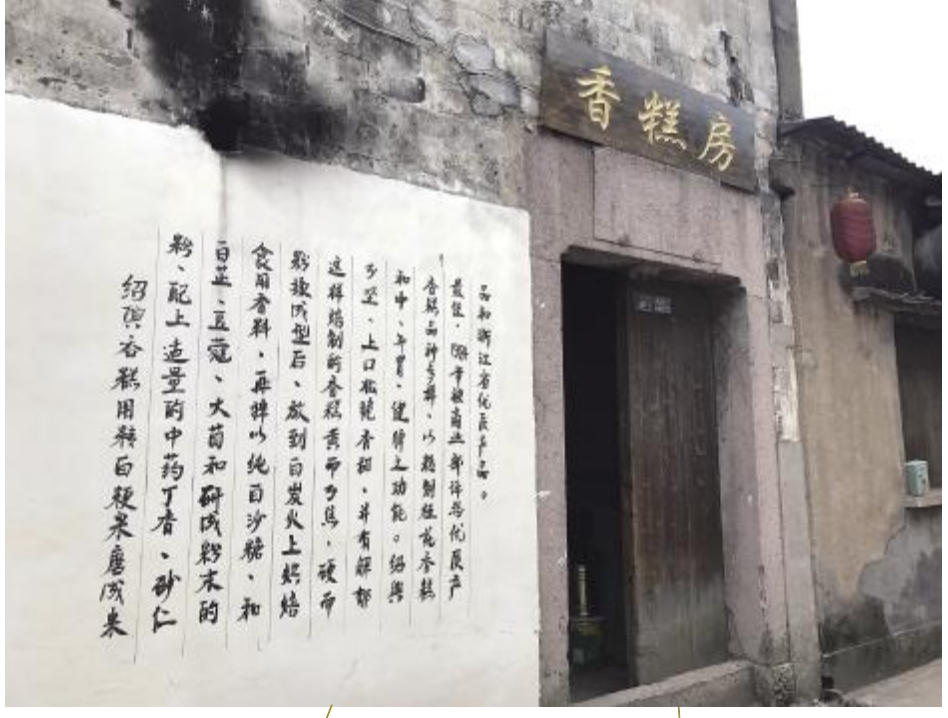 香糕房
绍興香糕用精白粳米磨成米
粉、配上适量的中药丁香、砂仁
白芷、豆蔻、大茴和研成粉末的
食用香料，再拌以纯白沙糖、和
粉揉成型后、放到白炭火上烘焙
这样焙制的香糕黄而不焦，硬而
不坚、上口松脆香甜、并有解郁
和中、开胃、健脾之功能。绍興
香糕品种多样、以精制桂花香糕
最佳，年被商业部评为优良产
品和浙江省优良产品。